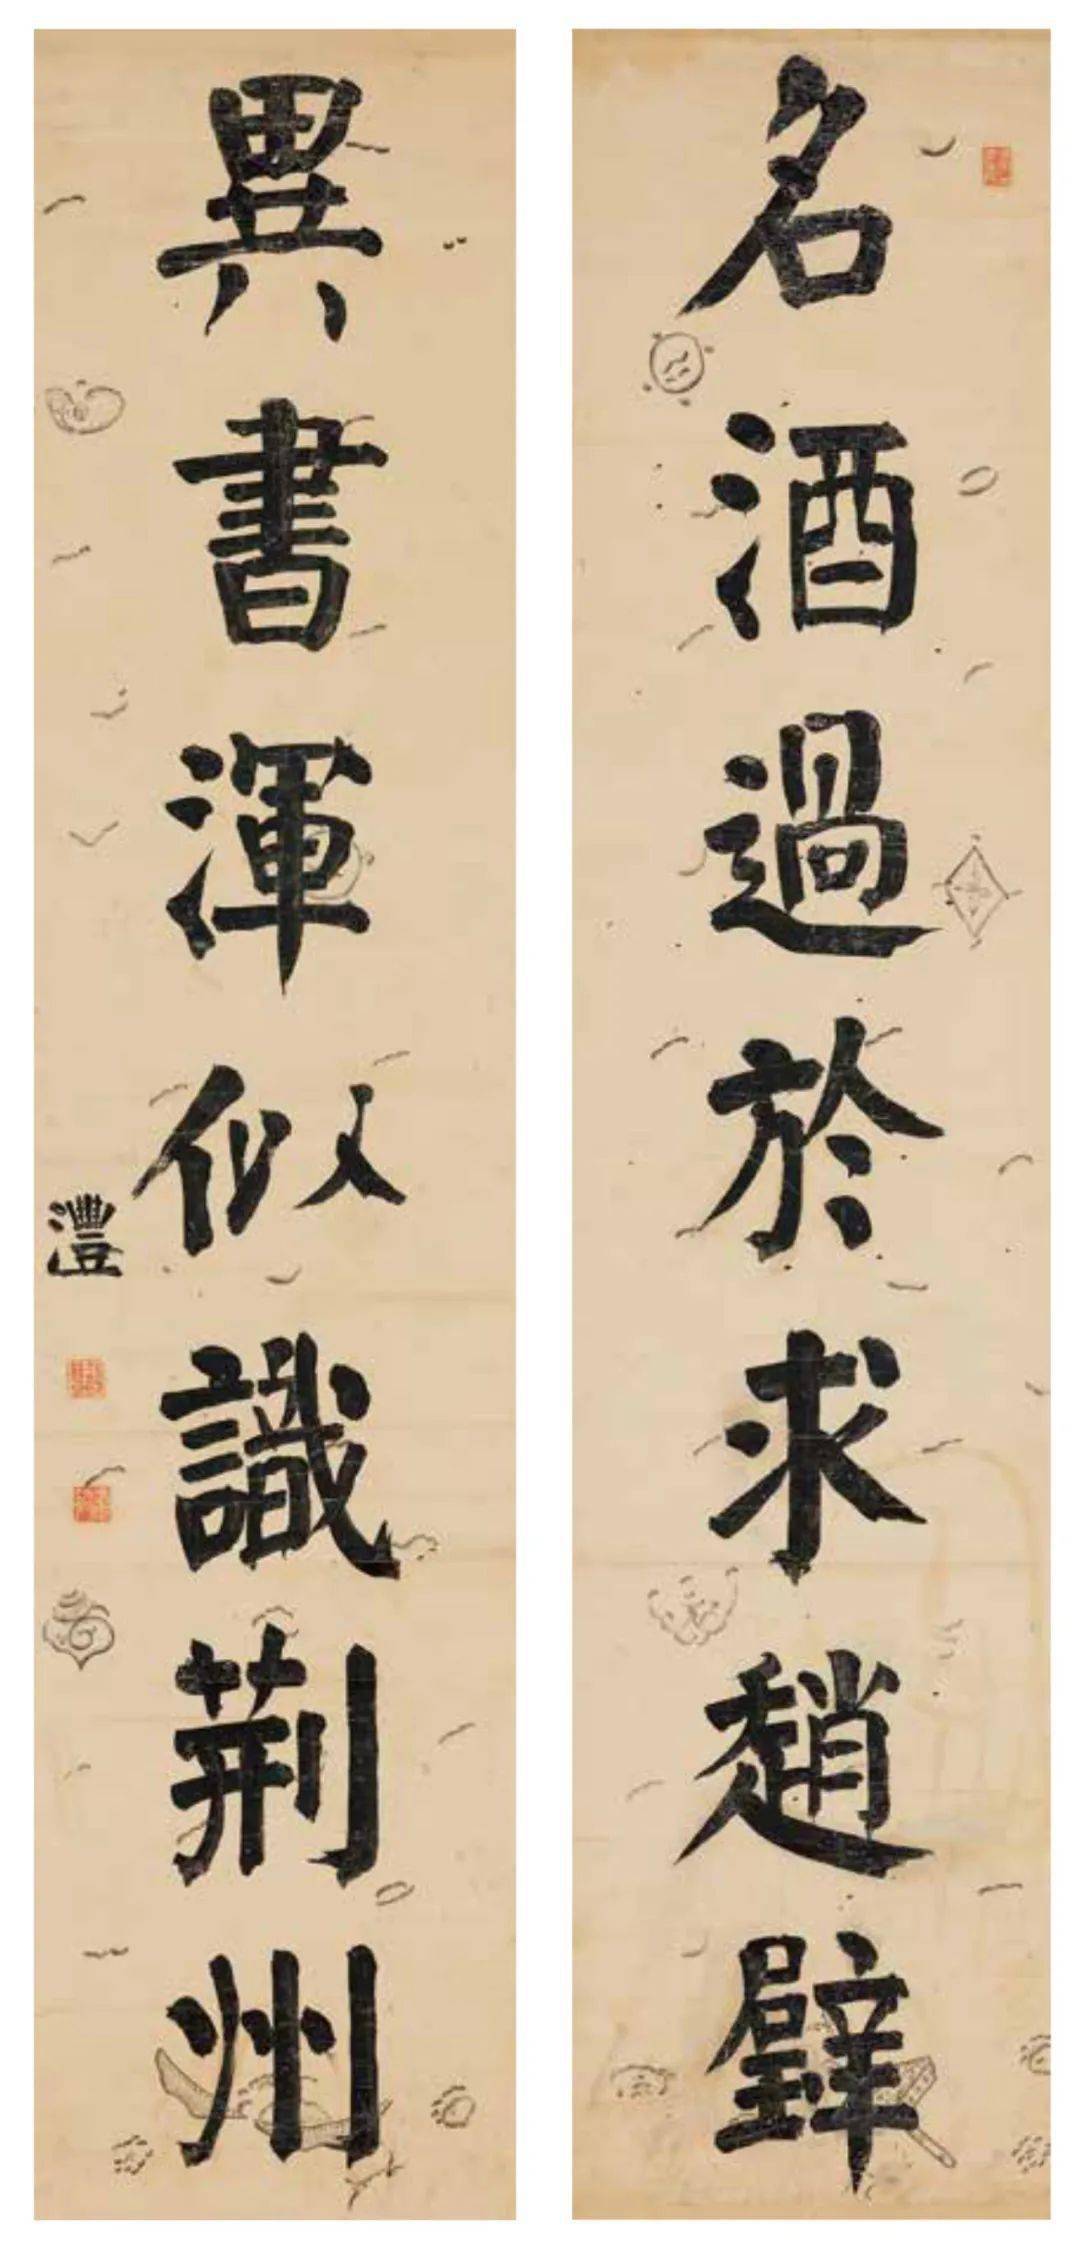 名酒過於求趙璧
異書渾似識荊州
灃